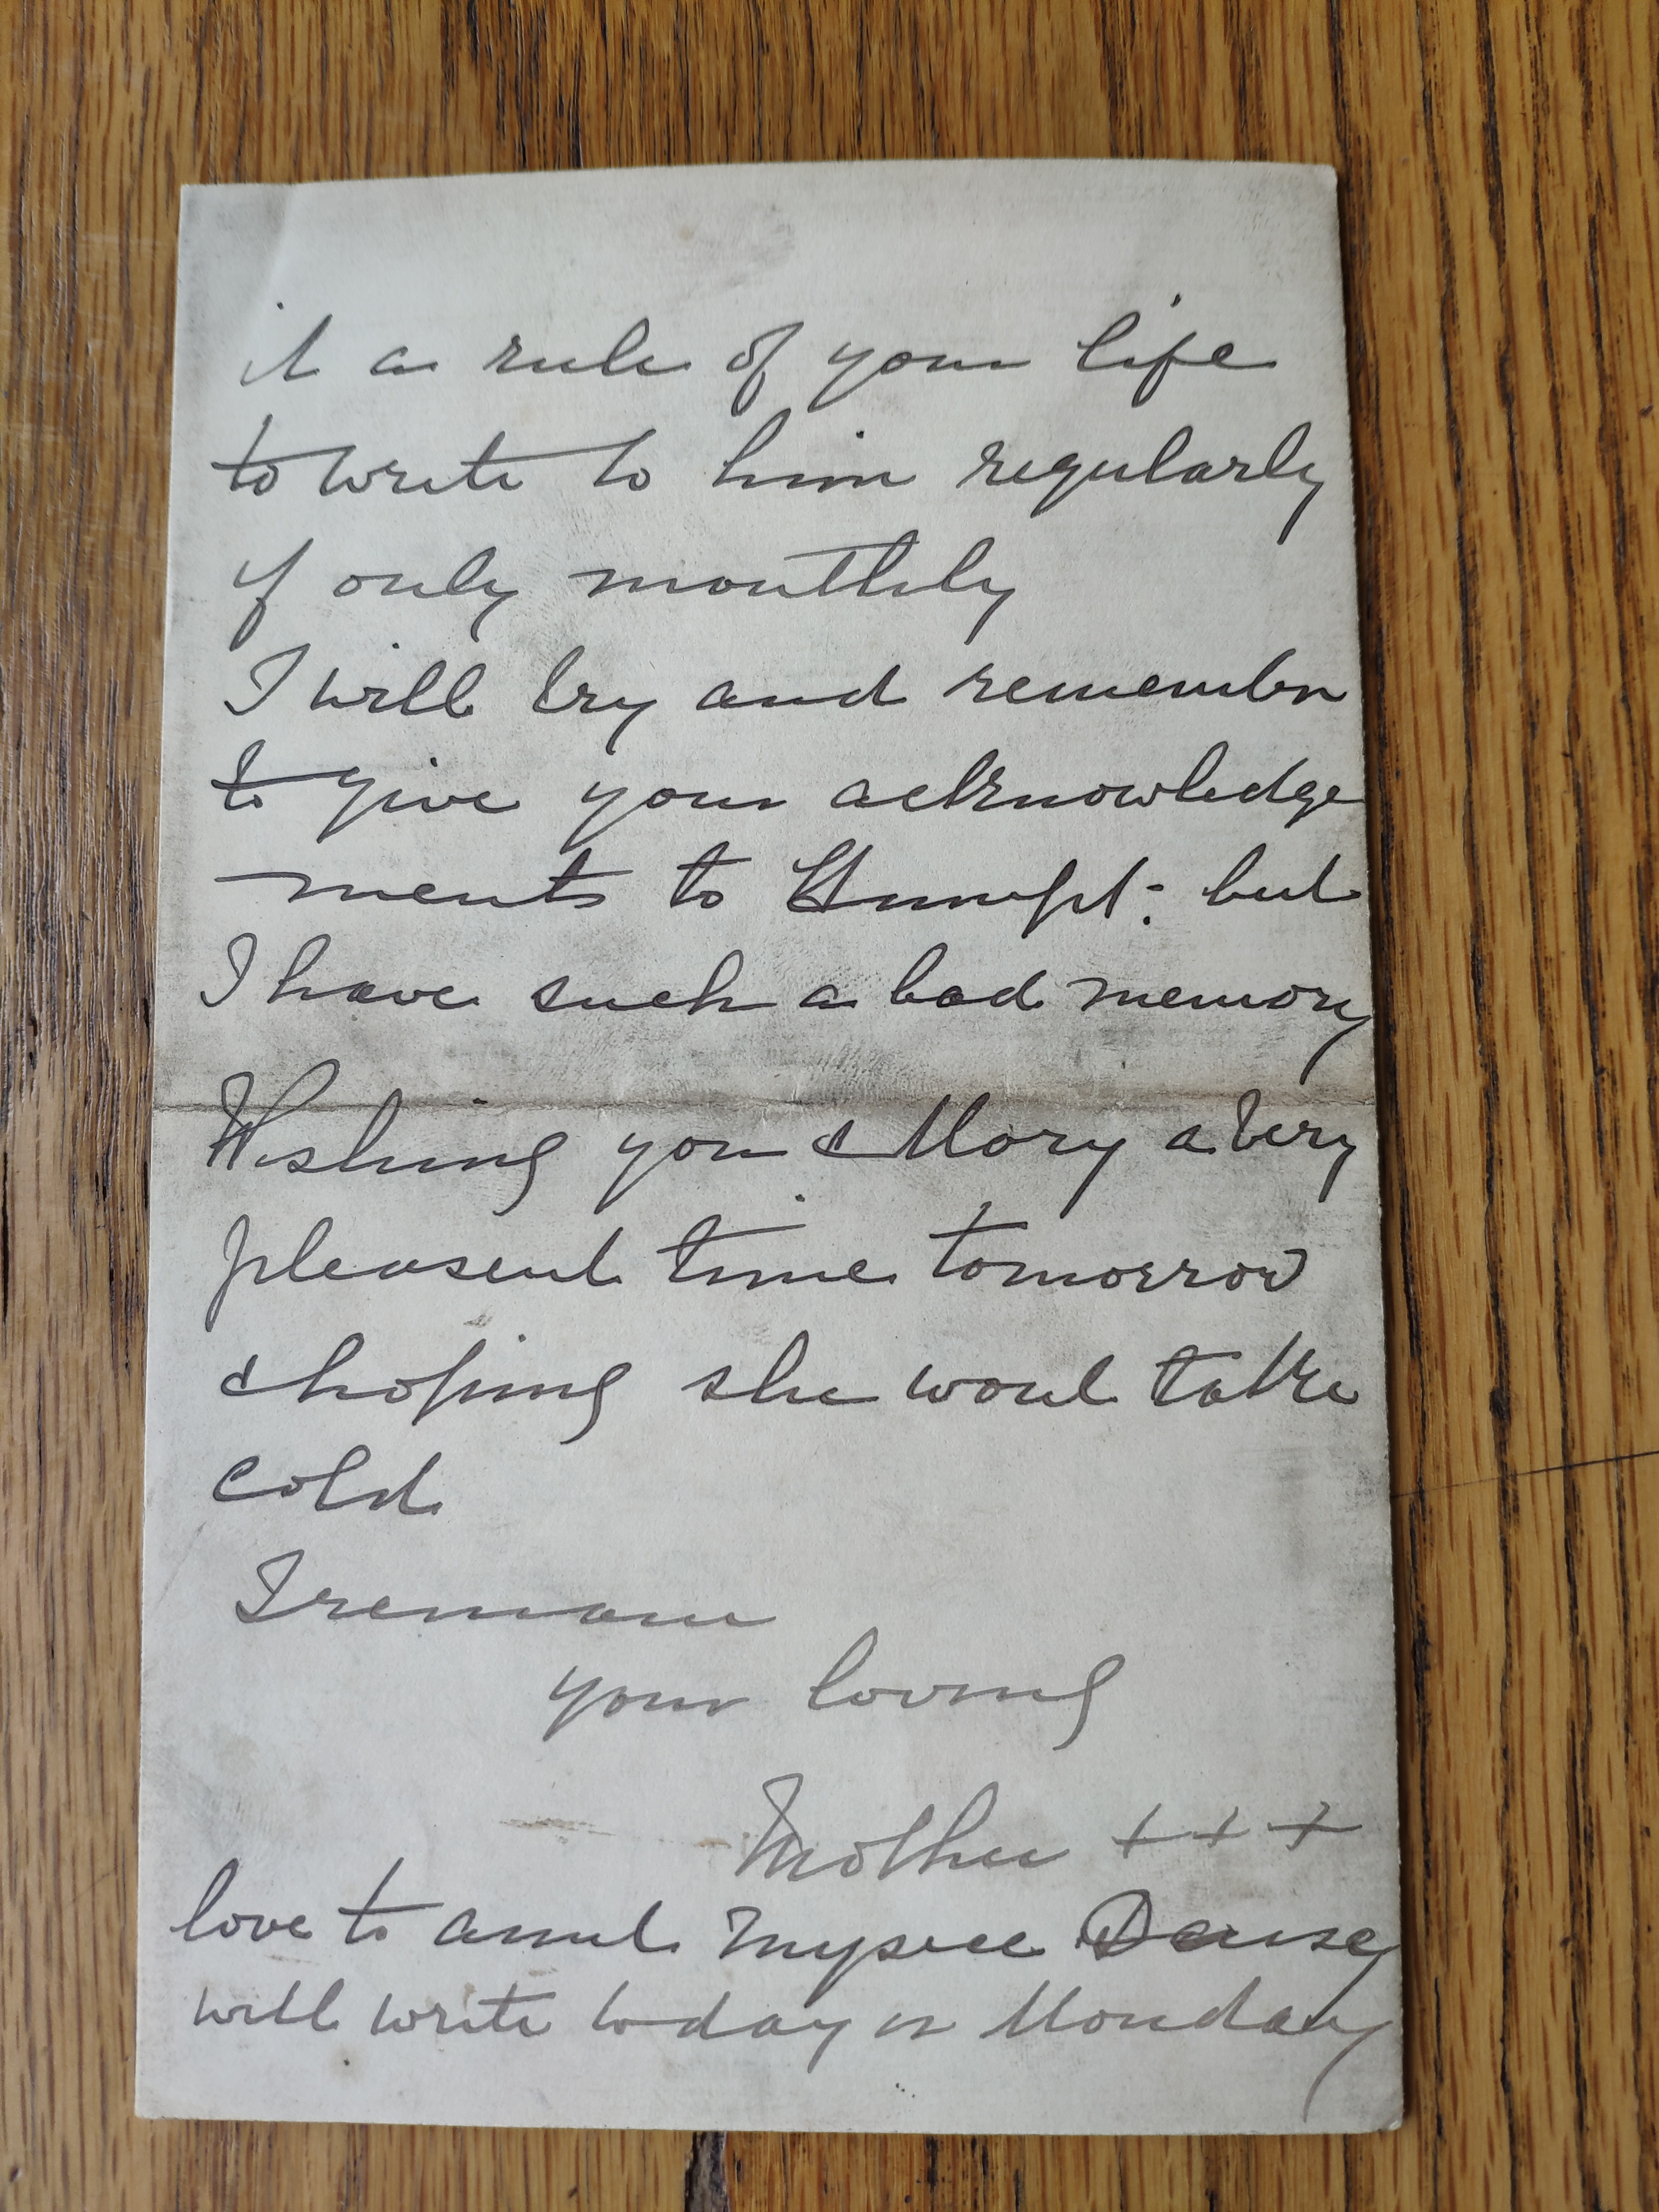 it a rule of your life
to write to him regularly
if only monthly
I will try and remember
to give your acknowledge
ments to but
I have such a bad memory
Wishing you & Mary a very
pleasent time tomorrow
& hoping she wont take
cold
I remain
your loving
Mother + + +
love to
will write today or Monday